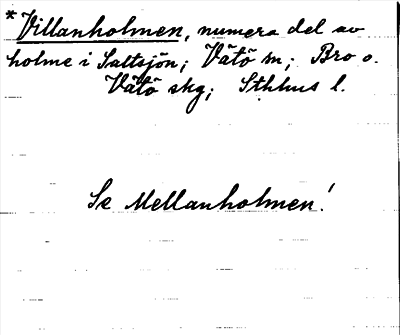 *Villanholmen, numera del av
holme i Saltsjön; Vätö sn; Bro o.
Vätö skg; Sthlms l.
Se Mellanholmen!